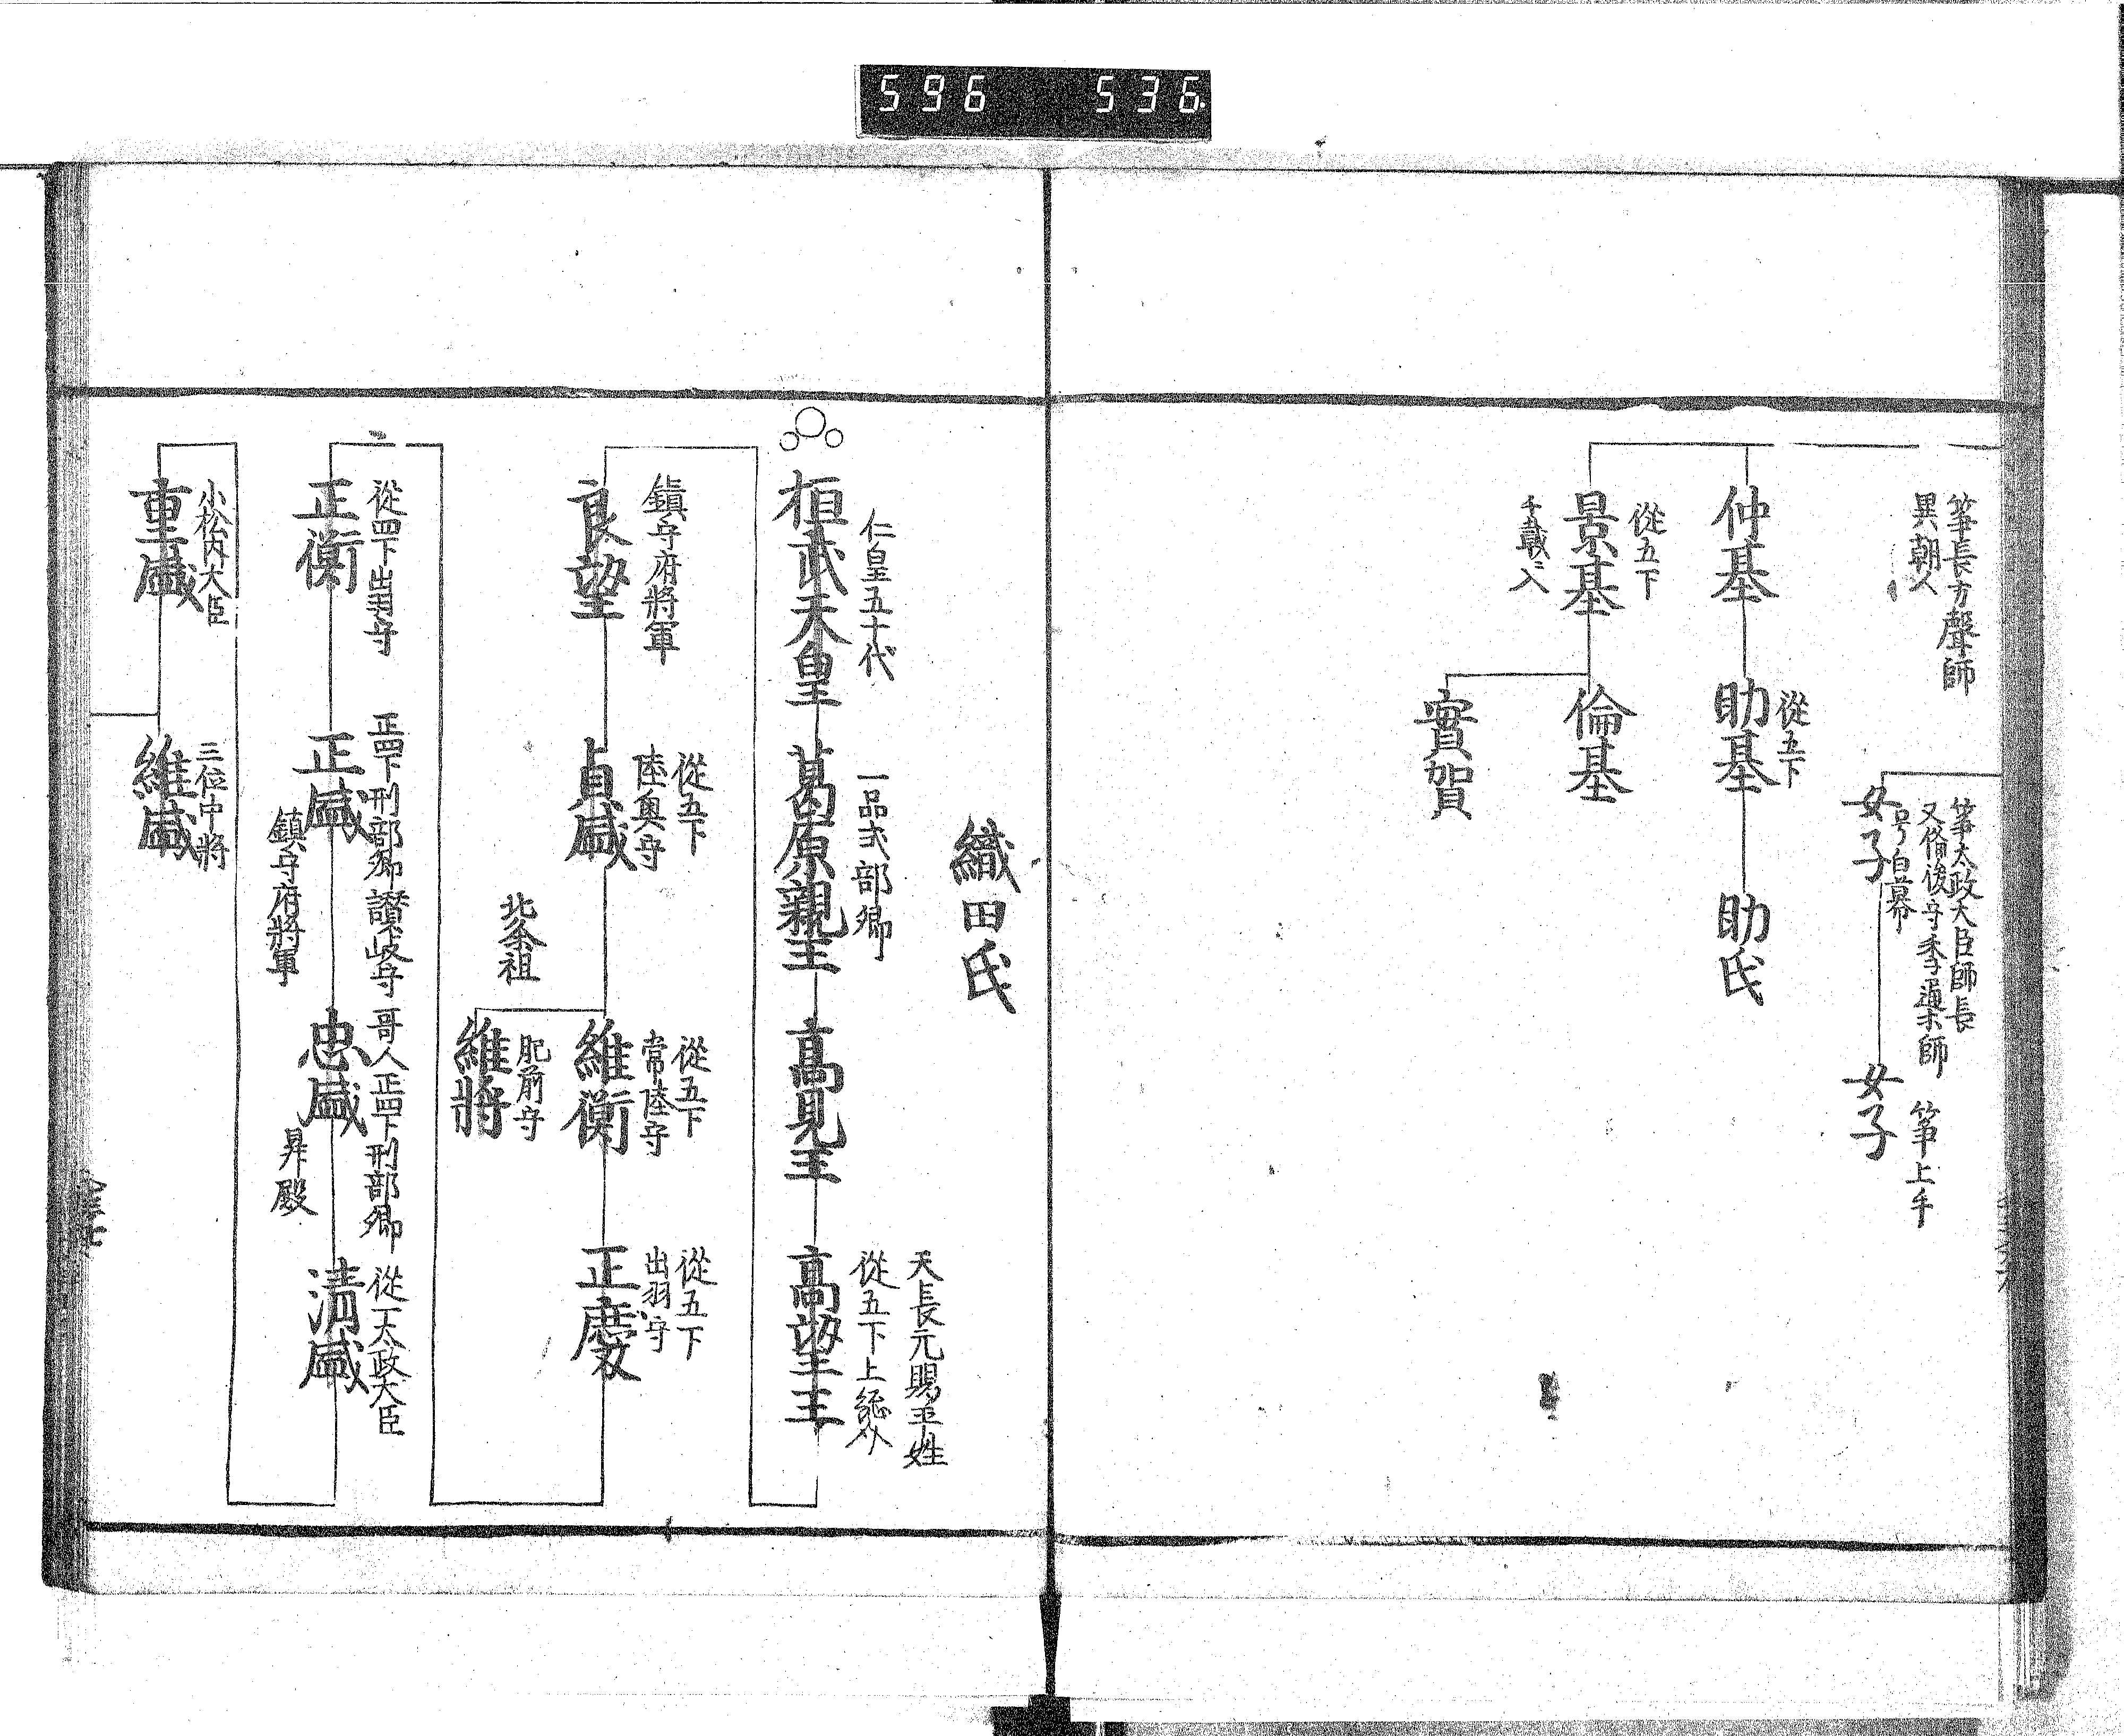 596 536
箏長方聲師
異朝人
箏太政大臣師長
又備後守季通東師
号白幕
女子
女子
箏上手
仲基
從五下
助基
助氏
從五下
景基
千載ニ入
倫基
實賀
織田氏
仁皇五十代
桓武天皇
一品式部卿
葛原親王
高見王
天長元賜平姓
從五下上総介
高望王
鎮守府將軍
良望
從五下
陸奥守
貞盛
從五下
常陸守
維衡
從五下
出羽守
正慶
北条祖
肥前守
維將
從四下出羽守
正衡
正四下刑部卿讃岐守
正盛
鎮守府將軍
哥人正四下刑部卿
忠盛
昇殿
從一太政大臣
清盛
小松内大臣
重盛
三位中將
維盛